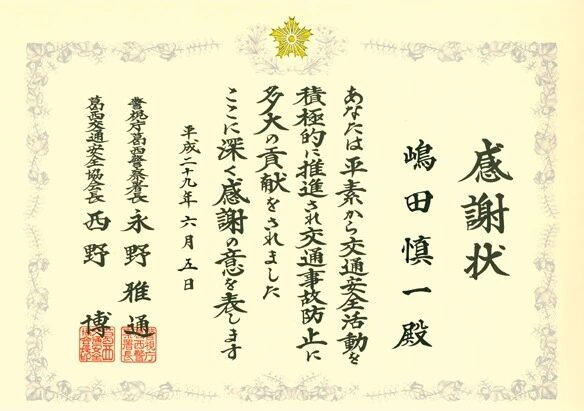 感謝状
嶋田慎一殿
あなたは平素から交通安全活動を
積極的に推進され交通事故防止に
多大の貢献をされました
ここに深く感謝の意を表します
平成二十九年六月五日
警視庁葛西警察署長 永野雅通
葛西交通安全協会長 西野博